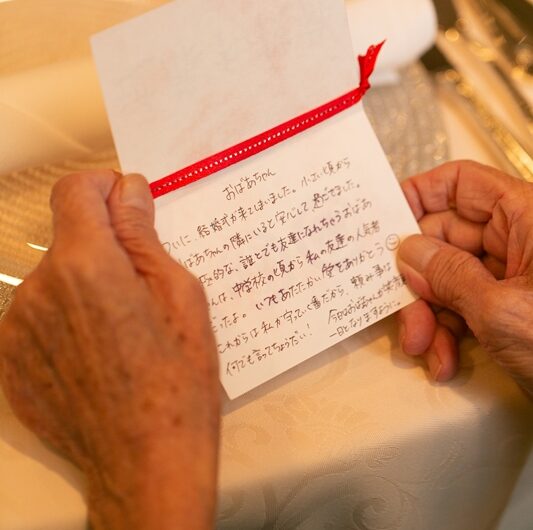 おばあちゃん
ついに、結婚式が来てしまいました。小さい頃から
ばあちゃんの隣にいると安心して過ごせました。
的な、誰とでも友達になれちゃうおばあ
んは、中学校の頃から私の友達の人気者
ったよ。いつもあたたかい愛をありがとう
これからは私が守っていく番だから、頼み事は
何でも言ってちょうだい！
今日はおばあちゃんが
一日となりますように。